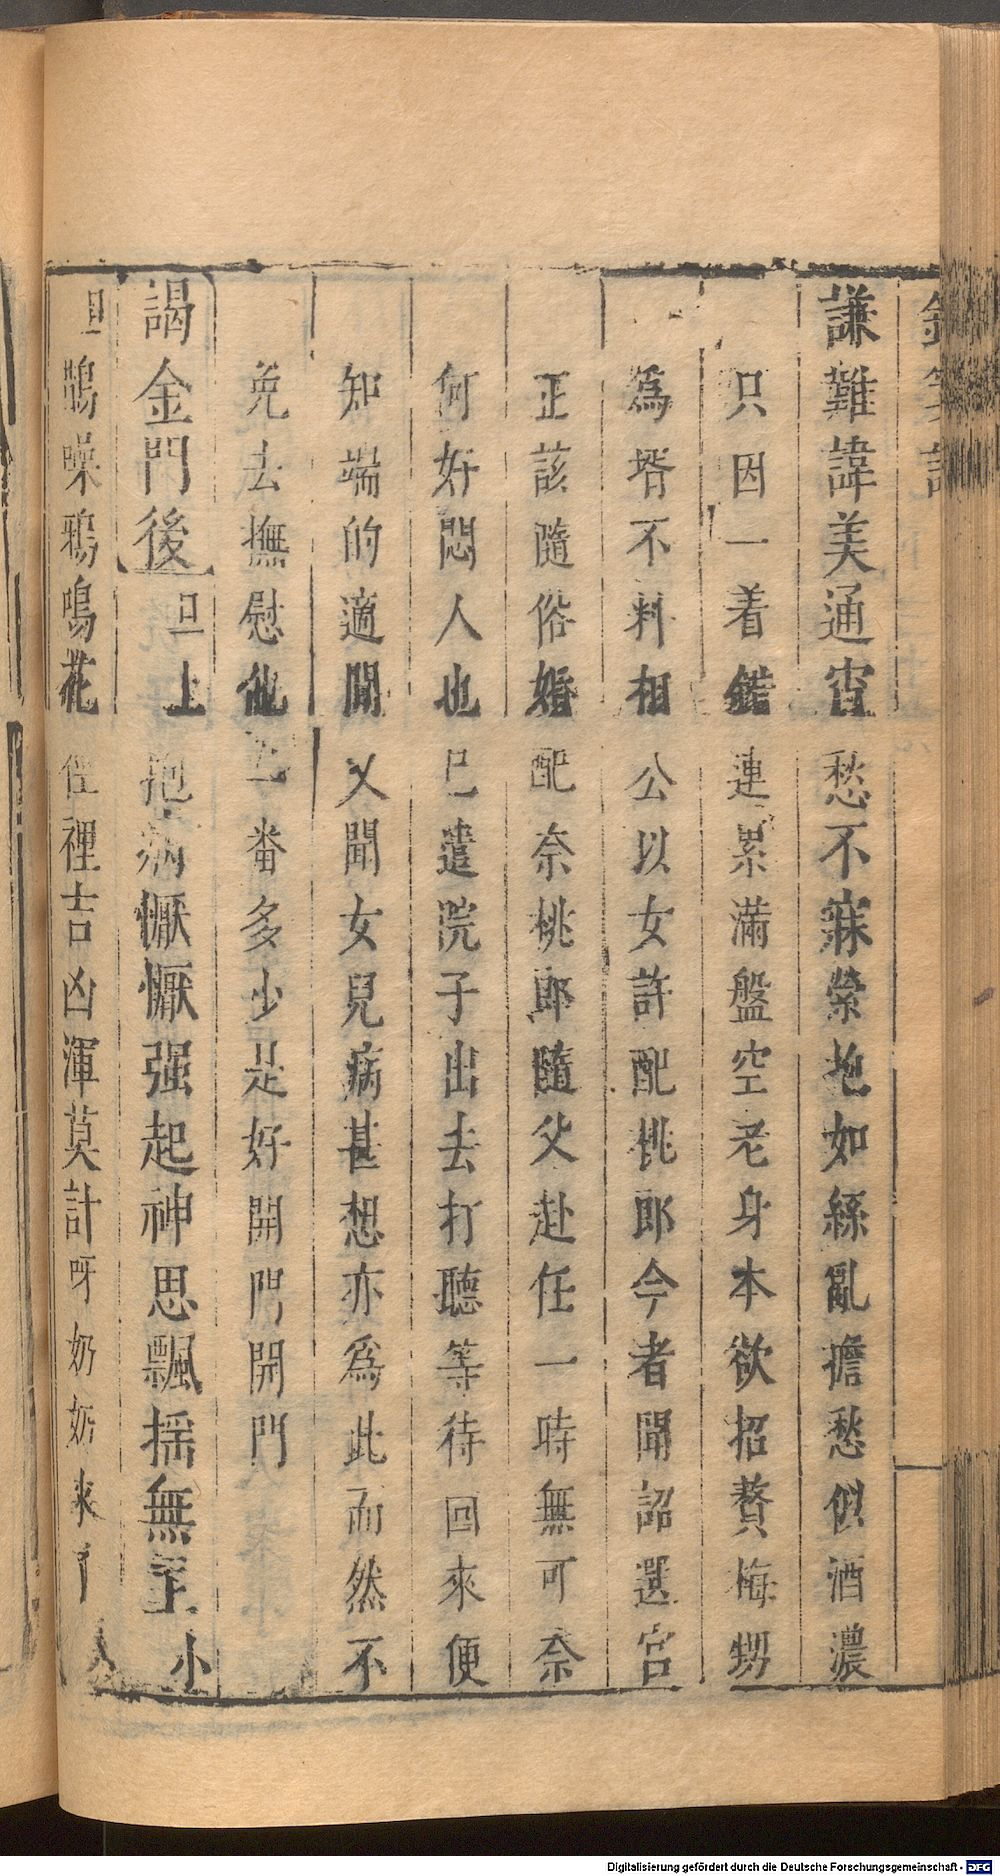 謙難諱美通宵愁不寐縈抱如絲亂擔愁似酒濃
只因一着錯連累滿盤空老身本欲招贅梅甥
爲壻不料相公以女許配桃郎今者聞詔選宮
正該隨俗婚配奈桃郎隨父赴任一時無可奈
何好悶人也已遣院子出去打聽等待回來便
知端的適聞又聞女兒病甚想亦爲此而然不
免去撫慰他一番多少是好開門開門
謁金門後旦上抱病懨懨强起神思飄揺無主小
旦鵲噪鴉鳴花裡吉凶渾莫計呀奶奶來了
Digitalisierung gefördert durch die Deutsche Forschungsgemeinschaft - DFG